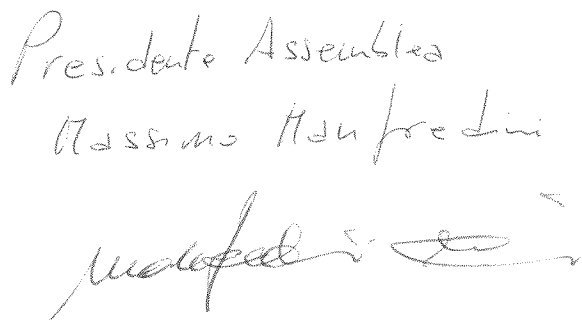 Presidente Assemblea
Massimo Manfredini